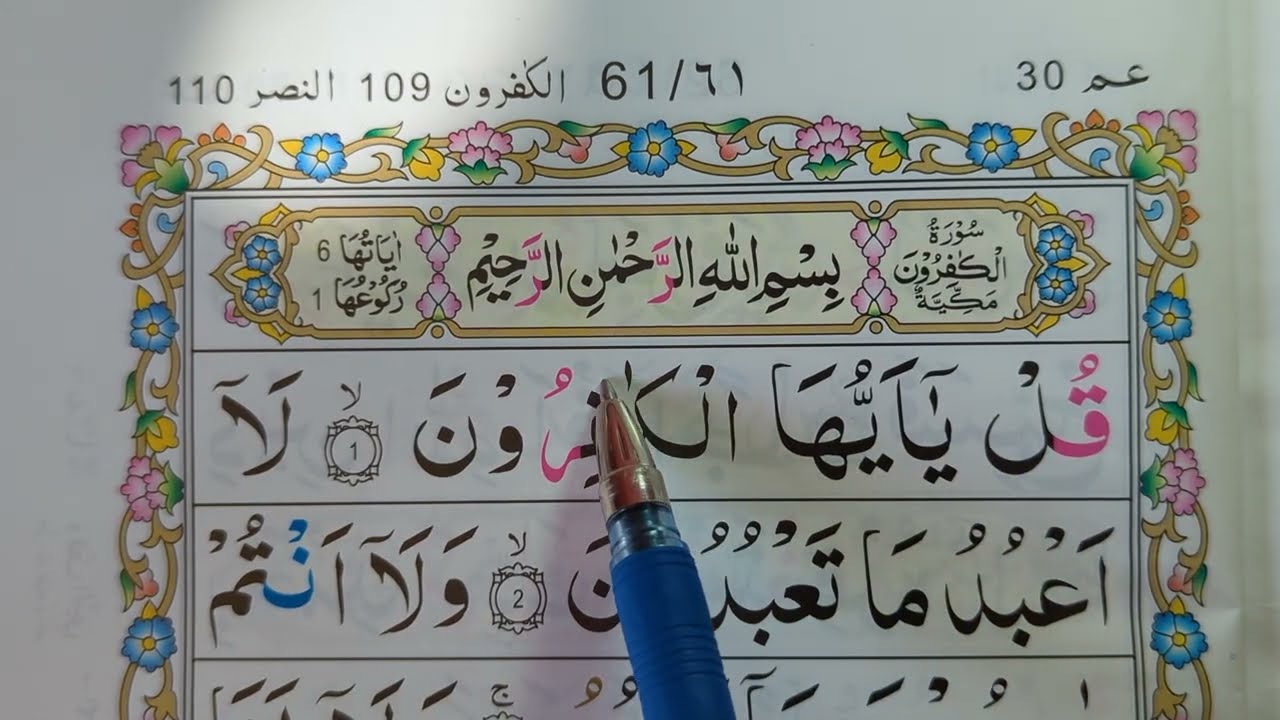 عم 30 61/٦١ الكٰفرون 109 النصر 110
سُوْرَةُ الْكٰفِرُوْنَ مَكِّيَّةٌ
بِسْمِ اللّٰهِ الرَّحْمٰنِ الرَّحِيْمِ
اٰيَاتُهَا 6
رُكُوْعُهَا 1
قُلْ يٰٓاَيُّهَا الْكٰفِرُوْنَ ۙ 1 لَآ
اَعْبُدُ مَا تَعْبُدُ نَ ۙ 2 وَلَآ اَنْتُمْ